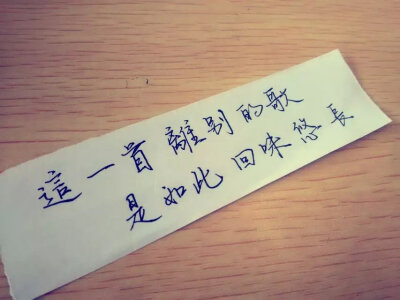 這一首離别的歌
是如此回味悠長